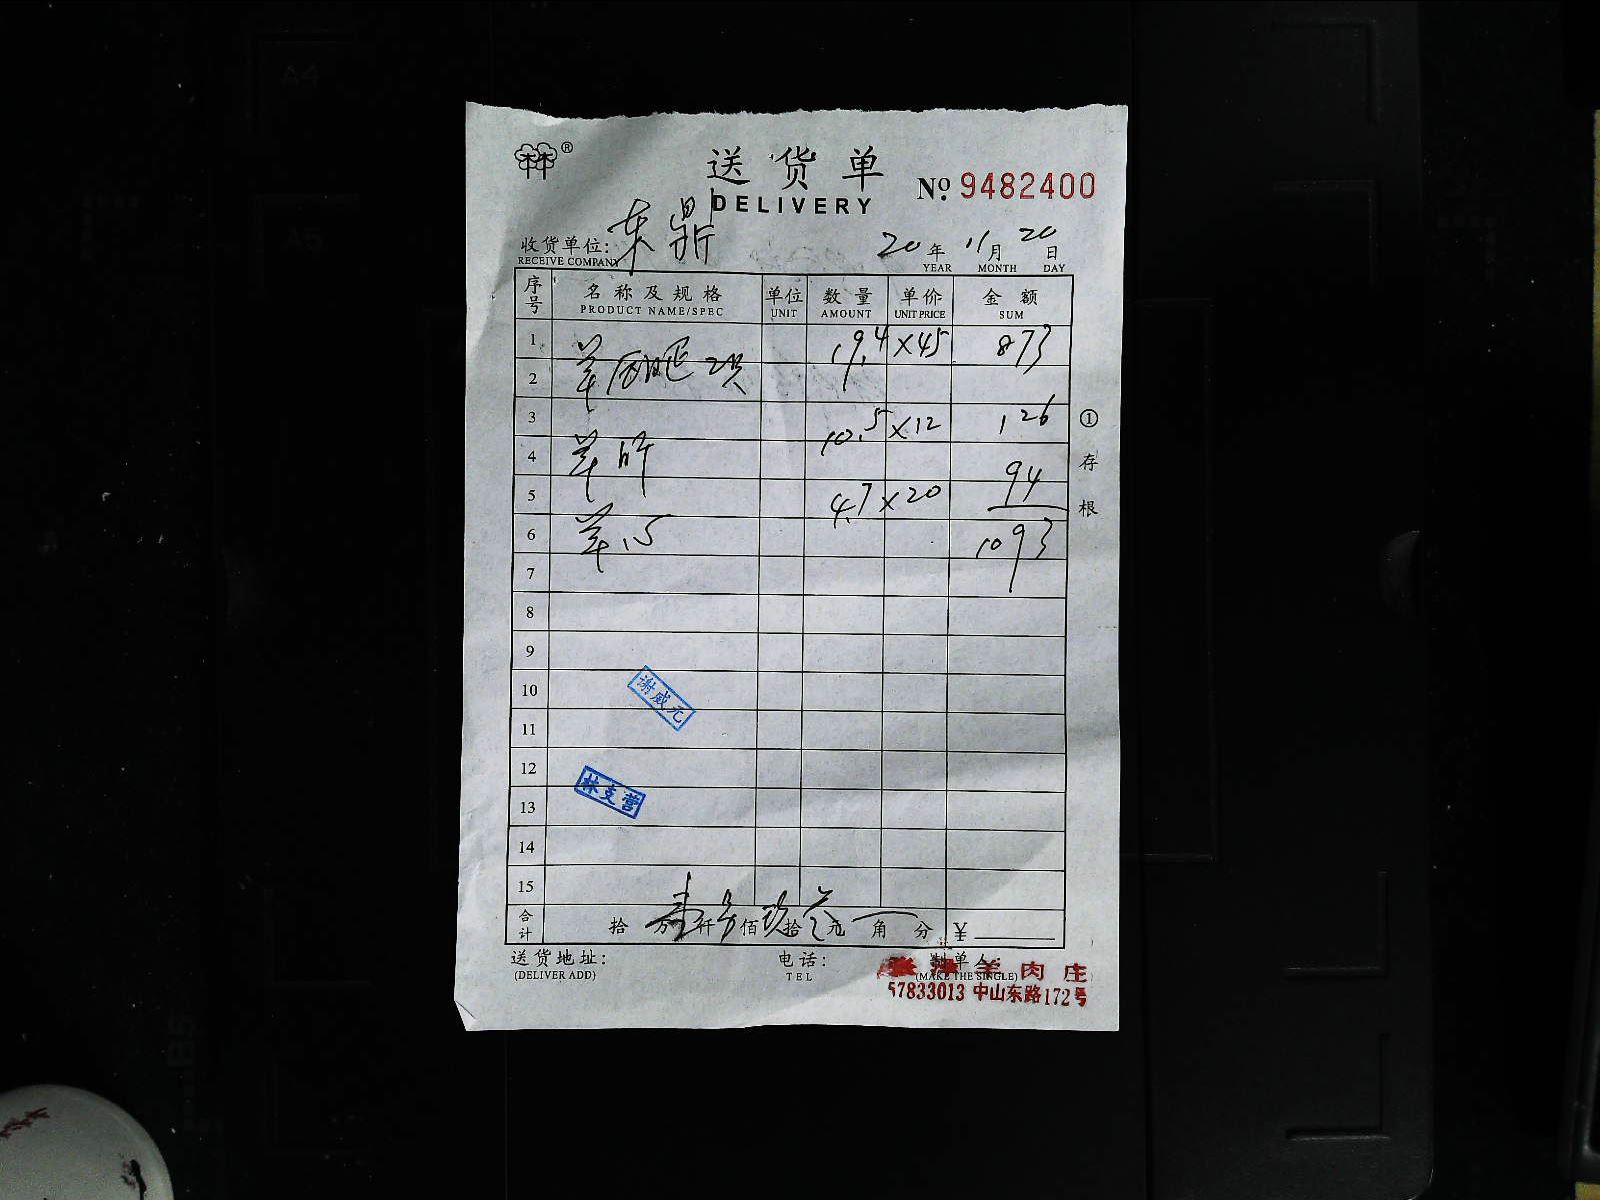 A4
A5
林林®
送货单
DELIVERY
№ 9482400
收货单位: 东鼎
RECEIVE COMPANY
20年 11月 20日
YEAR MONTH DAY
序号 名称及规格 单位 数量 单价 金额
PRODUCT NAME/SPEC UNIT AMOUNT UNIT PRICE SUM
1 19.4 ×45 873
2 羊后腿 2只
3 10.5 ×12 126
4 羊肝 94
5 4.7 ×20
6 羊心 1093
7
8
9
10
11
12
13
14
15
谢威元
林支营
合计 拾 万壹仟另佰玖拾叁元 角 分 ¥
送货地址: 电话: 制单人:
(DELIVER ADD) TEL (MAKE THE SINGLE)
羊肉庄
57833013 中山东路172号
①存根